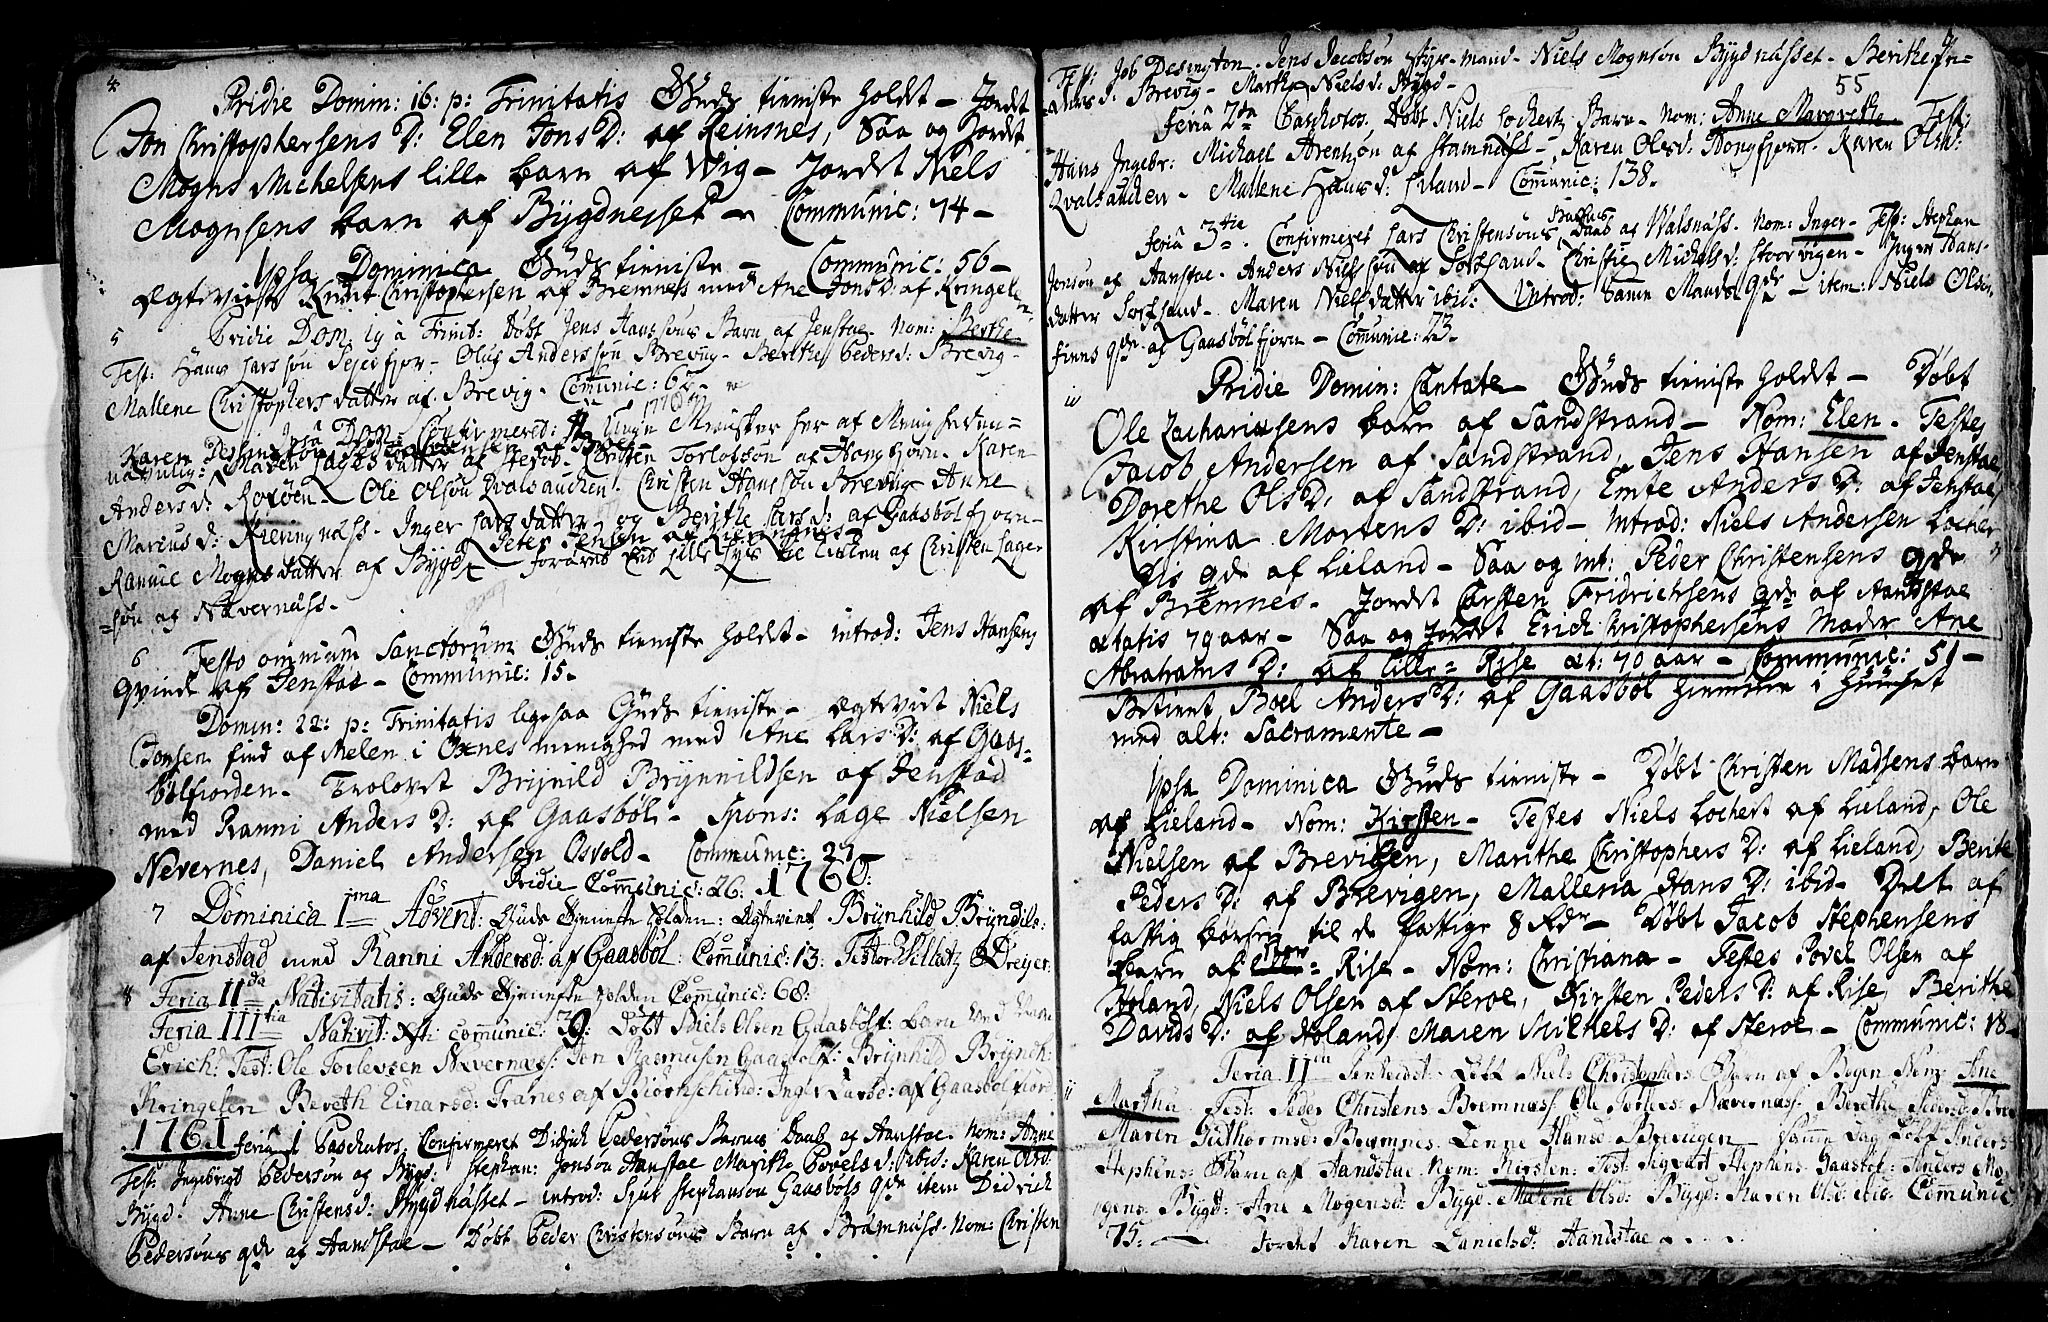 4
Pridie Domin: 16: p: Trinitatis Guds tieniste holdt – Jordet
Jon Christophersens D: Elen Jons D: af Reinsnes, Saa og Jordet
Mogns Michelsens lille barn af Wig – Jordet Niels
Mognsens barn af Bÿgdnesset – Communic: 74 –
Ipsa Dominica Guds tieniste – Communic: 56 –
Ægtevieste Knut Christophersen af Bremness med Ane Jons D: af Kringelen
5
Pridie Dom 19 à Trinit: Døbt Jens Hanssøns Barn af Jenstae. Nom: Berthe
Test: Hans Larssøn Sejedfjor – Oluf Anderssøn Brevig – Berthe Pedersd: Brevig –
Mallene Christophersdatter af Brevig – Comunic: 62 –
Ipsâ Dom: Confirmered: Unge Mennisker her af Menigheden
Karen
natulig: Maren Lagesdatter af Steroe – Christen Torlofsøn af Hongfjorn – Karen
Andersd: Roxøen – Ole Olsøn Qvalsauchen – Christen Hanssøn Brevig – Anne
Mariusd: Kieringnäss – Inger Larsdatter og Berithe Larsd: af Gaasbølfjorn –
Peter Jensen af Kieringnes
Rannie Mognsdatter af Bÿgd – foræret En Lille Lys til Kirken af Christen Lages-
=søn af Nævernäss –
6
Festo omnium Sanctorum Guds tieniste holdt – introd: Jens Hansens
Qvinde af Jenstae – Communic: 15 –
Domin: 22: p: Trinitatis ligesaa Guds tieniste – Ægteviet Niels
Joensen find af Melen i Øxnes menighed med Ane Lars D: af Gaas-
bølfiorden – Trolovet Brijnild Brÿnnildsen af Jenstad
med Ranni Anders D: af Gaasbøl – Spons: Lage Nielsen
Nevernes, Daniel Andersen Osvold – Communic: 27
Pridie Communic: 26: 1760:
7 Dominica Ima Advent: Guds Tjenneste holden: Ægteviet Brÿnhild Brÿndils:
af Jenstad med Ranni Andersd: af Gaasbøl: Comunic: 13: Testor Villatz Dreÿer:
8 Feria IIda Nativitatis: Guds Tjenneste holden Comunic: 68:
Feria IIItia Nativit: Xsti comunic: 39: Døbt Niels Olsen Gaasbøls: barn ved Navn
Erich: Test: Ole Torlevsen Nævernæss: Jon Rasmusen Gaasbøl: Brÿnhild Brÿndh:
Kringelen Bereth Einarsd: Tranes af Biørnschind: Inger Larsd: af Gaasbølfiord
1761 Feria 1 Paschatos Confirmeret Didrich Pedersøns Barns Daab af Aanstae. Nom: Anne
Test: Ingebrigt Pedersøn af Bÿgd. Stephan: Jonsøn Aanstae Marithe Povelsd: ibid: Karen Olsd:
Bÿgd. Anne Christensd: Bÿgdnässet – introd: Sjur Stephansøn Gaasbøls qde item Didrich
Pedersøns qde af Aandstae – Døbt Peder Christensøns Barn af Bramnäss. Nom: Christen
Test: Job Desington. Jens Jacobsøn Styr-mand – Niels Mognsøn Bÿgdnässet – Berithe
55
Brevig – Marthe Nielsd: Bÿgd –
Feriâ 2da Paschatos. Døbt Niels Locherts Barn – Nom: Anne Margrethe. Test:
Hans Ingebr: Michael Arentzøn af Stamnäss – Karen Olesd: Hongfjorn. Karen Olsd:
Qvalsauchen – Mallene Hansd: Liland – Comunic: 138.
Feriâ 3tie. Confirmeret Lars Christensøns Barns Daab af Walsnäss. Nom: Inger – Test: Stephan
Jonsøn af Aanstae. Anders Nielssøn af Sorssand – Christie Michelsd: Stoorvigen – Inger Hans-
datter Sorssand. Maren Nielsdatter ibid: Introd: Samme Mands qde – item: Niels Olsen
finns qde af Gaasbølfjorn – Comunic: 73 –
Pridie Domin: Cantate – Guds tieniste holdt – Døbt
Ole Zachariasens barn af Sandstrand – Nom: Elen. Testes
Jacob Andersen af Sandstrand, Jens Hansen af Jenstae
Dorethe Ols D: af Sandstrand, Emte Anders D: af Jenstae
Kirstina Mortens D: ibid – Introd: Niels Andersen Locher
tis qde af Lieland – Saa og int: Peder Christensens qde
af Bremnes – Jordet Carsten Fridrichsens qde af Aandstae
ætatis 79 aar – Saa og Jordet Erich Christophersens Moder Ane
Abrahams D: af Lille-Rise æt: 70 aar – Communic: 51 –
Betient Boel Anders D: af Gaasbøl hiemme i Huuset
med alt: Sacramente –
Ipsa Dominica Guds tieniste – Døbt Christen Madsens barn
af Lieland – Nom: Kirsten – Testes Niels Lochert af Lieland, Ole
Nielsen af Brevigen, Marithe Christophers D: af Lieland, Berite
Peders D: af Brevigen, Mallena Hans D: ibid – Delt af
fattig børsen til de fattige 8 Rdr – Døbt Jacob Stephensens
barn af Rise – Nom: Christiana – Testes Povel Olsen af
Holand, Niels Olsen af Steroe, Kirsten Peders D: af Rise, Berithe
Davids D: af Holand, Maren Michels D: af Steroe – Communic: 18 –
Feria IIda Pentecost: Døbt Niels Christophers: Barn af Bogen Nom: Ane
Martha. Test: Peder Christens: Bremnæss: Ole Torlers: Nævernæss: Berethe
Maren Guthormsd: Bremnes. Lenne Hansd: Brevigen – samme Dag Døbt Anders
Stephens: Barn af Aandstae Nom: Kirsten: Test: Sigvart Stephens: Gaasbøl: Anders Mo-
gens: Bÿgd: Ane Mogensd: Bÿgd. Malene Olsd: Bÿgd: Karen Olsd: ibid: Comunic
75: – Jordet Karen Danielsd: Aandstae